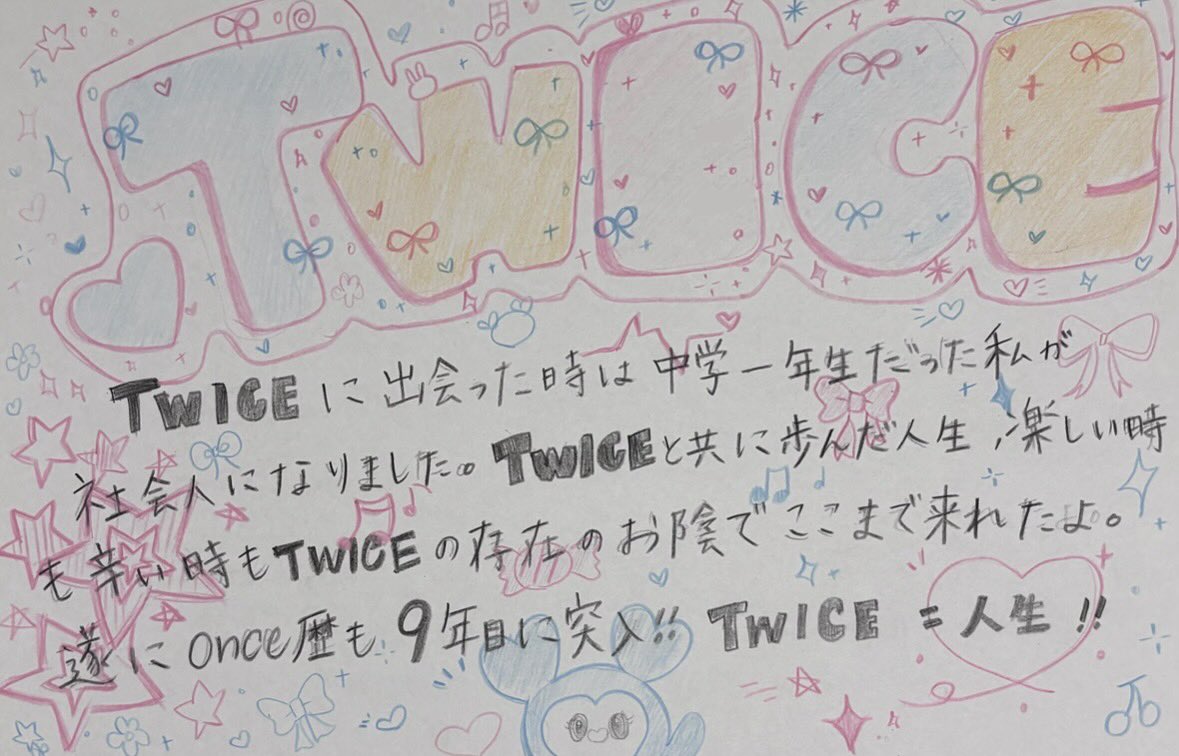 TWICE
TWICEに出会った時は中学一年生だった私が
社会人になりました。TWICEと共に歩んだ人生,楽しい時
も辛い時もTWICEの存在のお陰でここまで来れたよ。
遂にonce歴も9年目に突入!! TWICE = 人生!!